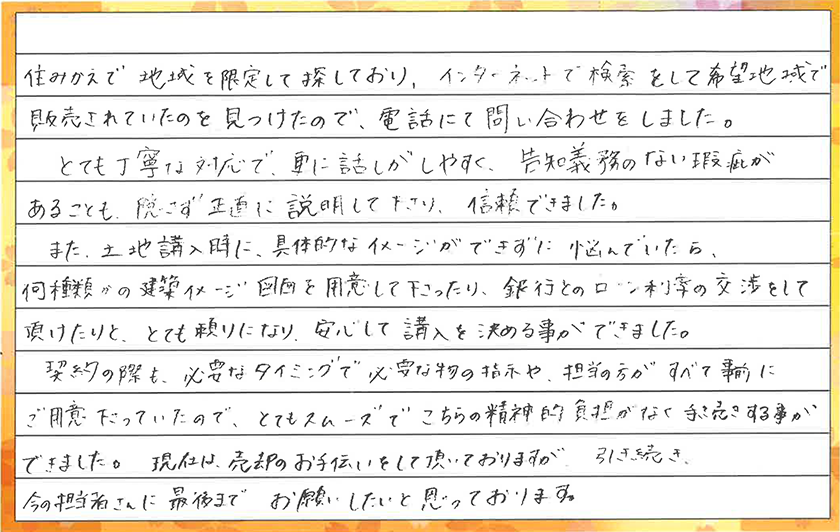 住みかえで地域を限定して探しており、インターネットで検索をして希望地域で
販売されていたのを見つけたので、電話にて問い合わせをしました。
とても丁寧な対応で、更に話しがしやすく、告知義務のない瑕疵が
あることも、隠さず正直に説明して下さり、信頼できました。
また、土地講入時に、具体的なイメージができずに悩んでいたら、
何種類かの建築イメージ図面を用意して下さったり、銀行とのローン利率の交渉をして
頂けたりと、とても頼りになり、安心して講入を決める事ができました。
契約の際も、必要なタイミングで必要な物の指示や、担当の方がすべて事前に
ご用意下さっていたので、とてもスムーズでこちらの精神的負担がなく手続きする事が
できました。現在は、売却のお手伝いをして頂いておりますが、引き続き、
今の担当者さんに最後までお願いしたいと思っております。